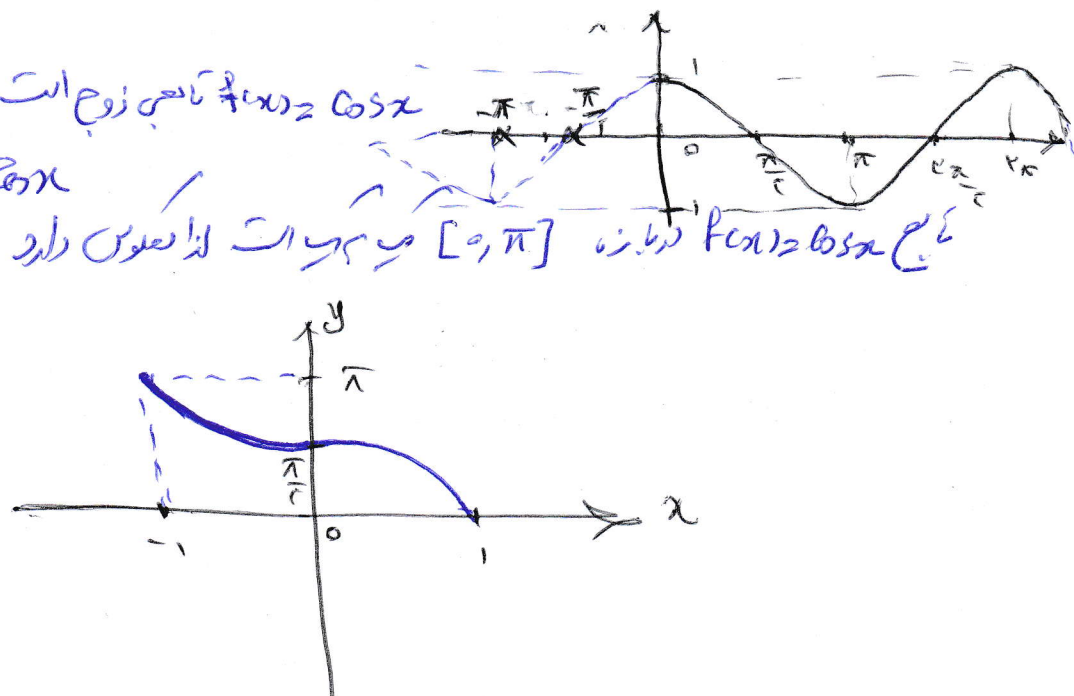 f(x) = Cosx تابعی زوج است
1
-π
-π/2
0
π/2
π
3π/2
2π
-1
Cosx
تابع f(x) = Cosx در بازه [0, π] یک به یک است لذا معکوس دارد
y
π
π/2
-1
0
1
x